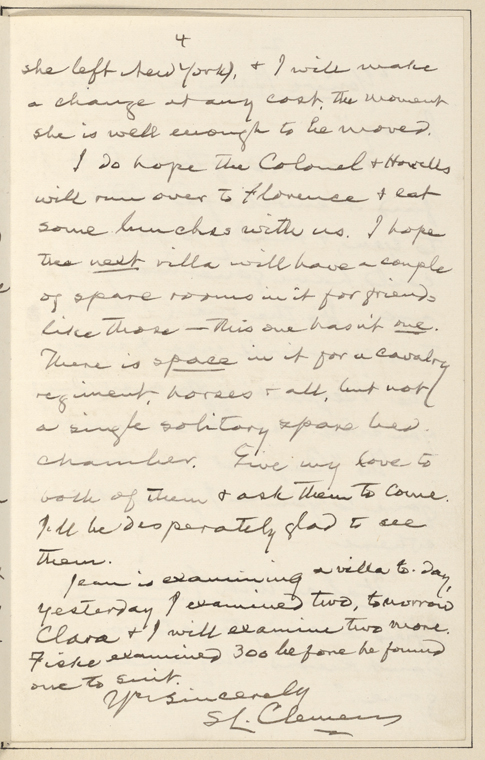 4
she left New York), & I will make
a change at any cost, the moment
she is well enough to be moved.
I do hope the Colonel & Howells
will run over to Florence & eat
some lunches with us. I hope
the next villa will have a couple
of spare rooms in it for friends
like those — this one hasn't one.
There is space in it for a cavalry
regiment, horses & all, but not
a single solitary spare bed-
chamber. Give my love to
both of them & ask them to come.
I'll be desperately glad to see
them.
Jean is examining a villa to-day,
yesterday I examined two, tomorrow
Clara & I will examine two more.
Fiske examined 300 before he found
one to suit.
Yrs sincerely
SL. Clemens